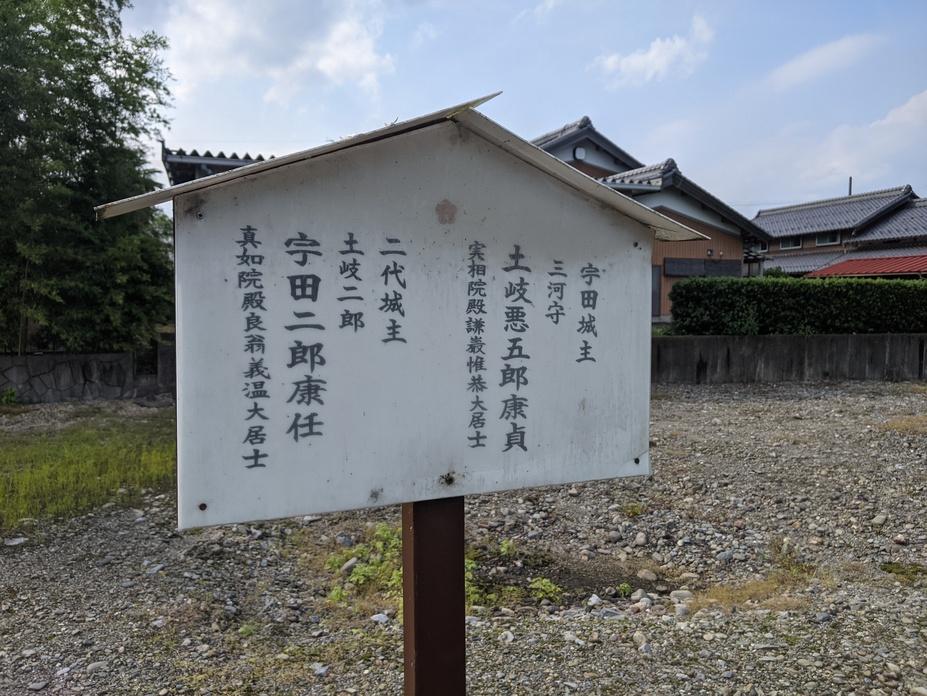 宇田城主
三河守
土岐悪五郎康貞
実相院殿謙巌惟恭大居士
二代城主
土岐二郎
宇田二郎康任
真如院殿良翁義温大居士